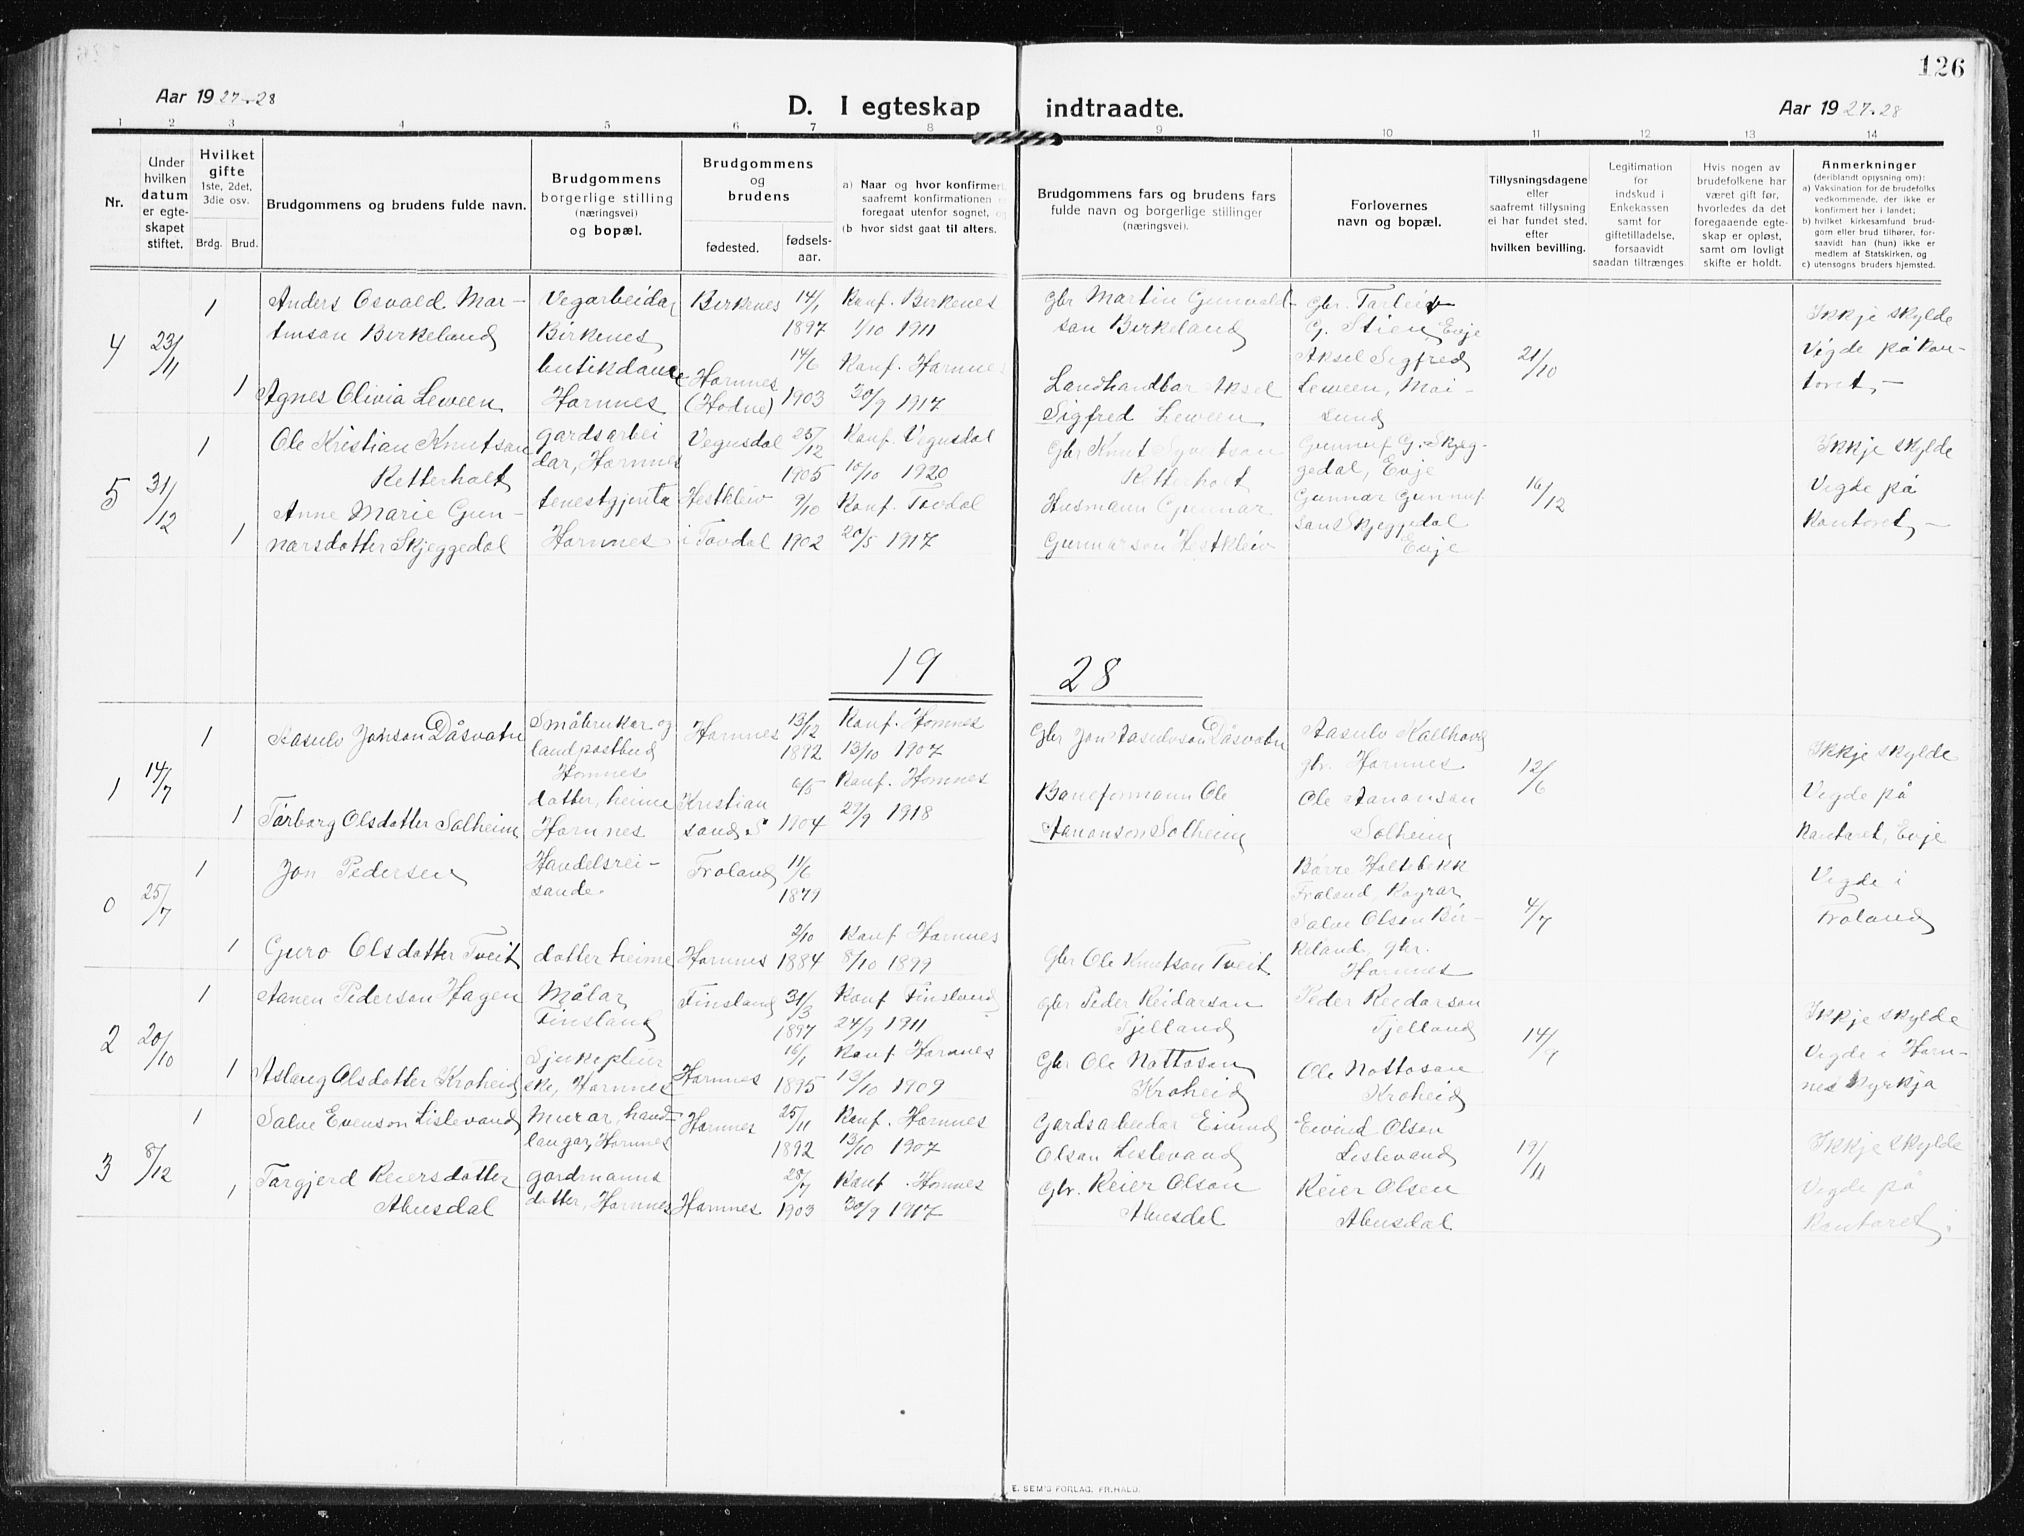 126
Aar 1927-28
D. I egteskap indtraadte.
Aar 1927-28
1 2 3 4 5 6 7 8 9 10 11 12 13 14
Nr.
Under hvilken datum er egteskapet stiftet.
Hvilket gifte 1ste, 2det, 3die osv.
Brdg. Brud.
Brudgommens og brudens fulde navn.
Brudgommens borgerlige stilling (næringsvei) og bopæl.
Brudgommens og brudens
fødested.
fødsels-aar.
a) Naar og hvor konfirmert,
saafremt konfirmationen e
foregaat utenfor sognet, og
(b hvor sidst gaat til alters.
Brudgommens fars og brudens fars
fulde navn og borgerlige stillinger
(næringsvei).
Forlovernes
navn og bopæl.
Tillysningsdagene
eller
saafremt tillysning
ei har fundet sted,
efter
hvilken bevilling.
Legitimation
for
indskud i
Enkekassen
samt for
giftetilladelse,
forsaavidt
saadan tiltrænges
Hvis nogen av
brudefolkene har
været gift før,
hvorledes da det
foregaaende egte-
skap er opløst,
samt om lovligt
skifte er holdt.
Anmerkninger
(deriblandt opysning om):
a) Vaksination for de brudefolks
vedkommende, der ikke er
konfirmert her i landet;
b) hvilket kirkesamfund brud-
gom eller brud tilhører, for-
saavidt han (hun) ikke er
medlem af Statskirken, og
c) utensogns bruders hjemsted.
4 23/11 1 Anders Osvald Mar-
tinson Birkeland
Vegarbeidar
Birkenes
Birkenes 14/1
1897
Konf. Birkenes
1/10 1911
gbr Martin Gunvald-
son Birkeland
gbr. Tarleiv
G. Stien, Evje
21/10
Ikkje skylde
Vigde på kon-
toret,-
1 Agnes Olivia Leween
butikdame
Hornnes
Hornnes
(Hodne)
14/6
1903
Konf. Hornnes
30/9 1917
Landhandlar Aksel
Sigfred Leween
Aksel Sigfred
Leween, Moi-
sund
5 31/12 1 Ole Kristian Knutson
Retterholt
gardsarbei
dar, Hornnes
Vegusdal 25/12
1905
Konf. Vegusdal
10/10 1920
gbr Knut Syvertson
Retterholt
Gunnuf G. Skjeg-
gedal, Evje
16/12
Ikkje skylde
Vigde på
kontoret,-
1 Anne Marie Gun-
narsdotter Skjeggedal
tenestgjenta
Hornnes
Hestkleiv
i Tovdal
9/10
1902
Konf. Tovdal
20/5 1917
Husmann Gunnar
Gunnarson Hestkleiv
Gunnar Gunnuf
son Skjeggedal
Evje
19 28
1 14/7 1 Aasulv Jonson Dåsvatn
Småbrukar og
landpostbud
Hornnes
Hornnes 13/12
1892
Konf. Hornnes
13/10 1907
Gbr Jon Aasulvson Dåsvatn
Aasulv Kallhovd
gbr. Hornnes
12/6
Ikkje skylde
Vigde på
kontoret, Evje
1 Torborg Olsdotter Solheim
dotter, heime
Hornnes
Kristian
sand S
6/5
1904
Konf. Hornnes
29/9 1918
Baneformann Ole
Aanonson Solheim
Ole Aanonson
Solheim
0 25/7 1 Jon Pedersen
Handelsrei-
sande.
Froland 11/6
1879
Børre Holtebekk
Froland,
Salve Olsen Bir-
keland, gbr.
Hornnes
4/7
Vigde i
Froland
1 Guro Olsdotter Tveit
dotter heime
Hornnes 2/10
1884
Konf Hornnes
8/10 1899
gbr Ole Knutson Tveit
2 20/10 1 Aanen Pederson Hagen
Målar
Finsland
Finsland 31/3
1897
Konf Finsland
24/9 1911
gbr Peder Reidarson
Fjelland
Peder Reidarson
Fjelland
14/9
Ikkje skylde
Vigde i Horn-
nes kyrkja
1 Aslaug Olsdotter Kroheid
Sjukepleier
ske, Hornnes
Hornnes 16/1
1895
Konf Hornnes
13/10 1909
Gbr Ole Nottoson
Kroheid
Ole Nottoson
Kroheid
3 8/12 1 Salve Evenson Lislevand
Murar, hand-
langar, Hornnes
Hornnes 25/11
1892
Konf. Hornnes
13/10 1907
Gardsarbeidar Eivind
Olson Lislevand
Eivind Olson
Lislevand
19/11
Ikkje skylde
Vigde på
kontoret.
1 Torgjerd Reiersdotter
Abusdal
gardmanns
dotter, Hornnes
Hornnes 28/7
1903
Konf. Hornnes
30/9 1917
Gbr. Reier Olson
Abusdal
Reier Olsen
Abusdal
E. SEM'S FORLAG, FR.HALD.